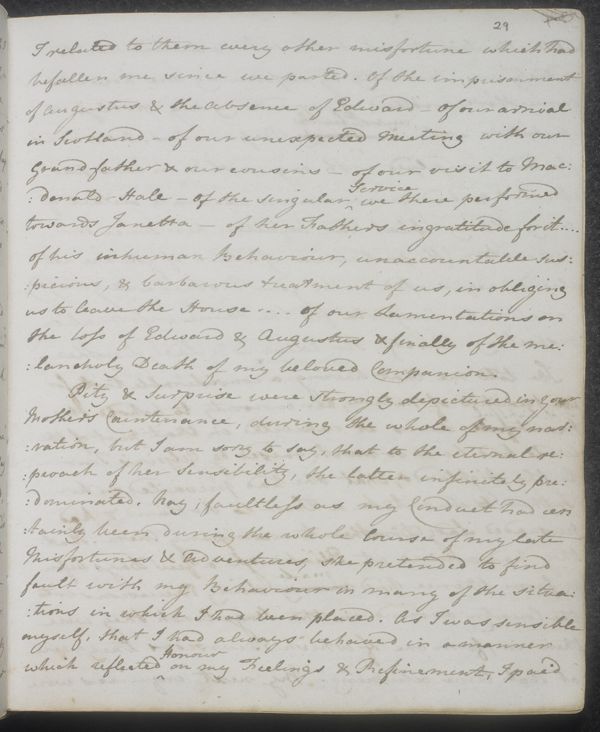 29
I related to them every other misfortune which had
befallen me since we parted. Of the imprisonment
of Augustus & the absence of Edward – of our arrival
in Scotland – of our unexpected Meeting with our
Grandfather & our cousins – of our visit to Mac:
:donald-Hall – of the singular Service we there performed
towards Janetta – of her Fathers ingratitude for it....
of his inhuman Behaviour, unaccountable sus:
:picions, & barbarous treatment of us, in obliging
us to leave the House .... of our Lamentations on
the loss of Edward & Augustus & finally of the me:
:lancholy Death of my beloved Companion.
Pity & Surprise were strongly depictured in your
Mothers Countenance, during the whole of my nar:
:ration, but I am sorry to say, that to the eternal re:
:proach of her Sensibility, the latter infinitely pre:
:dominated. Nay, faultless as my Conduct had cer:
:tainly been during the whole Course of my late
Misfortunes & Adventures, she pretended to find
fault with my Behaviour in many of the situa:
:tions in which I had been placed. As I was sensible
myself, that I had always behaved in a manner
which reflected Honour on my Feelings & Refinement, I paid